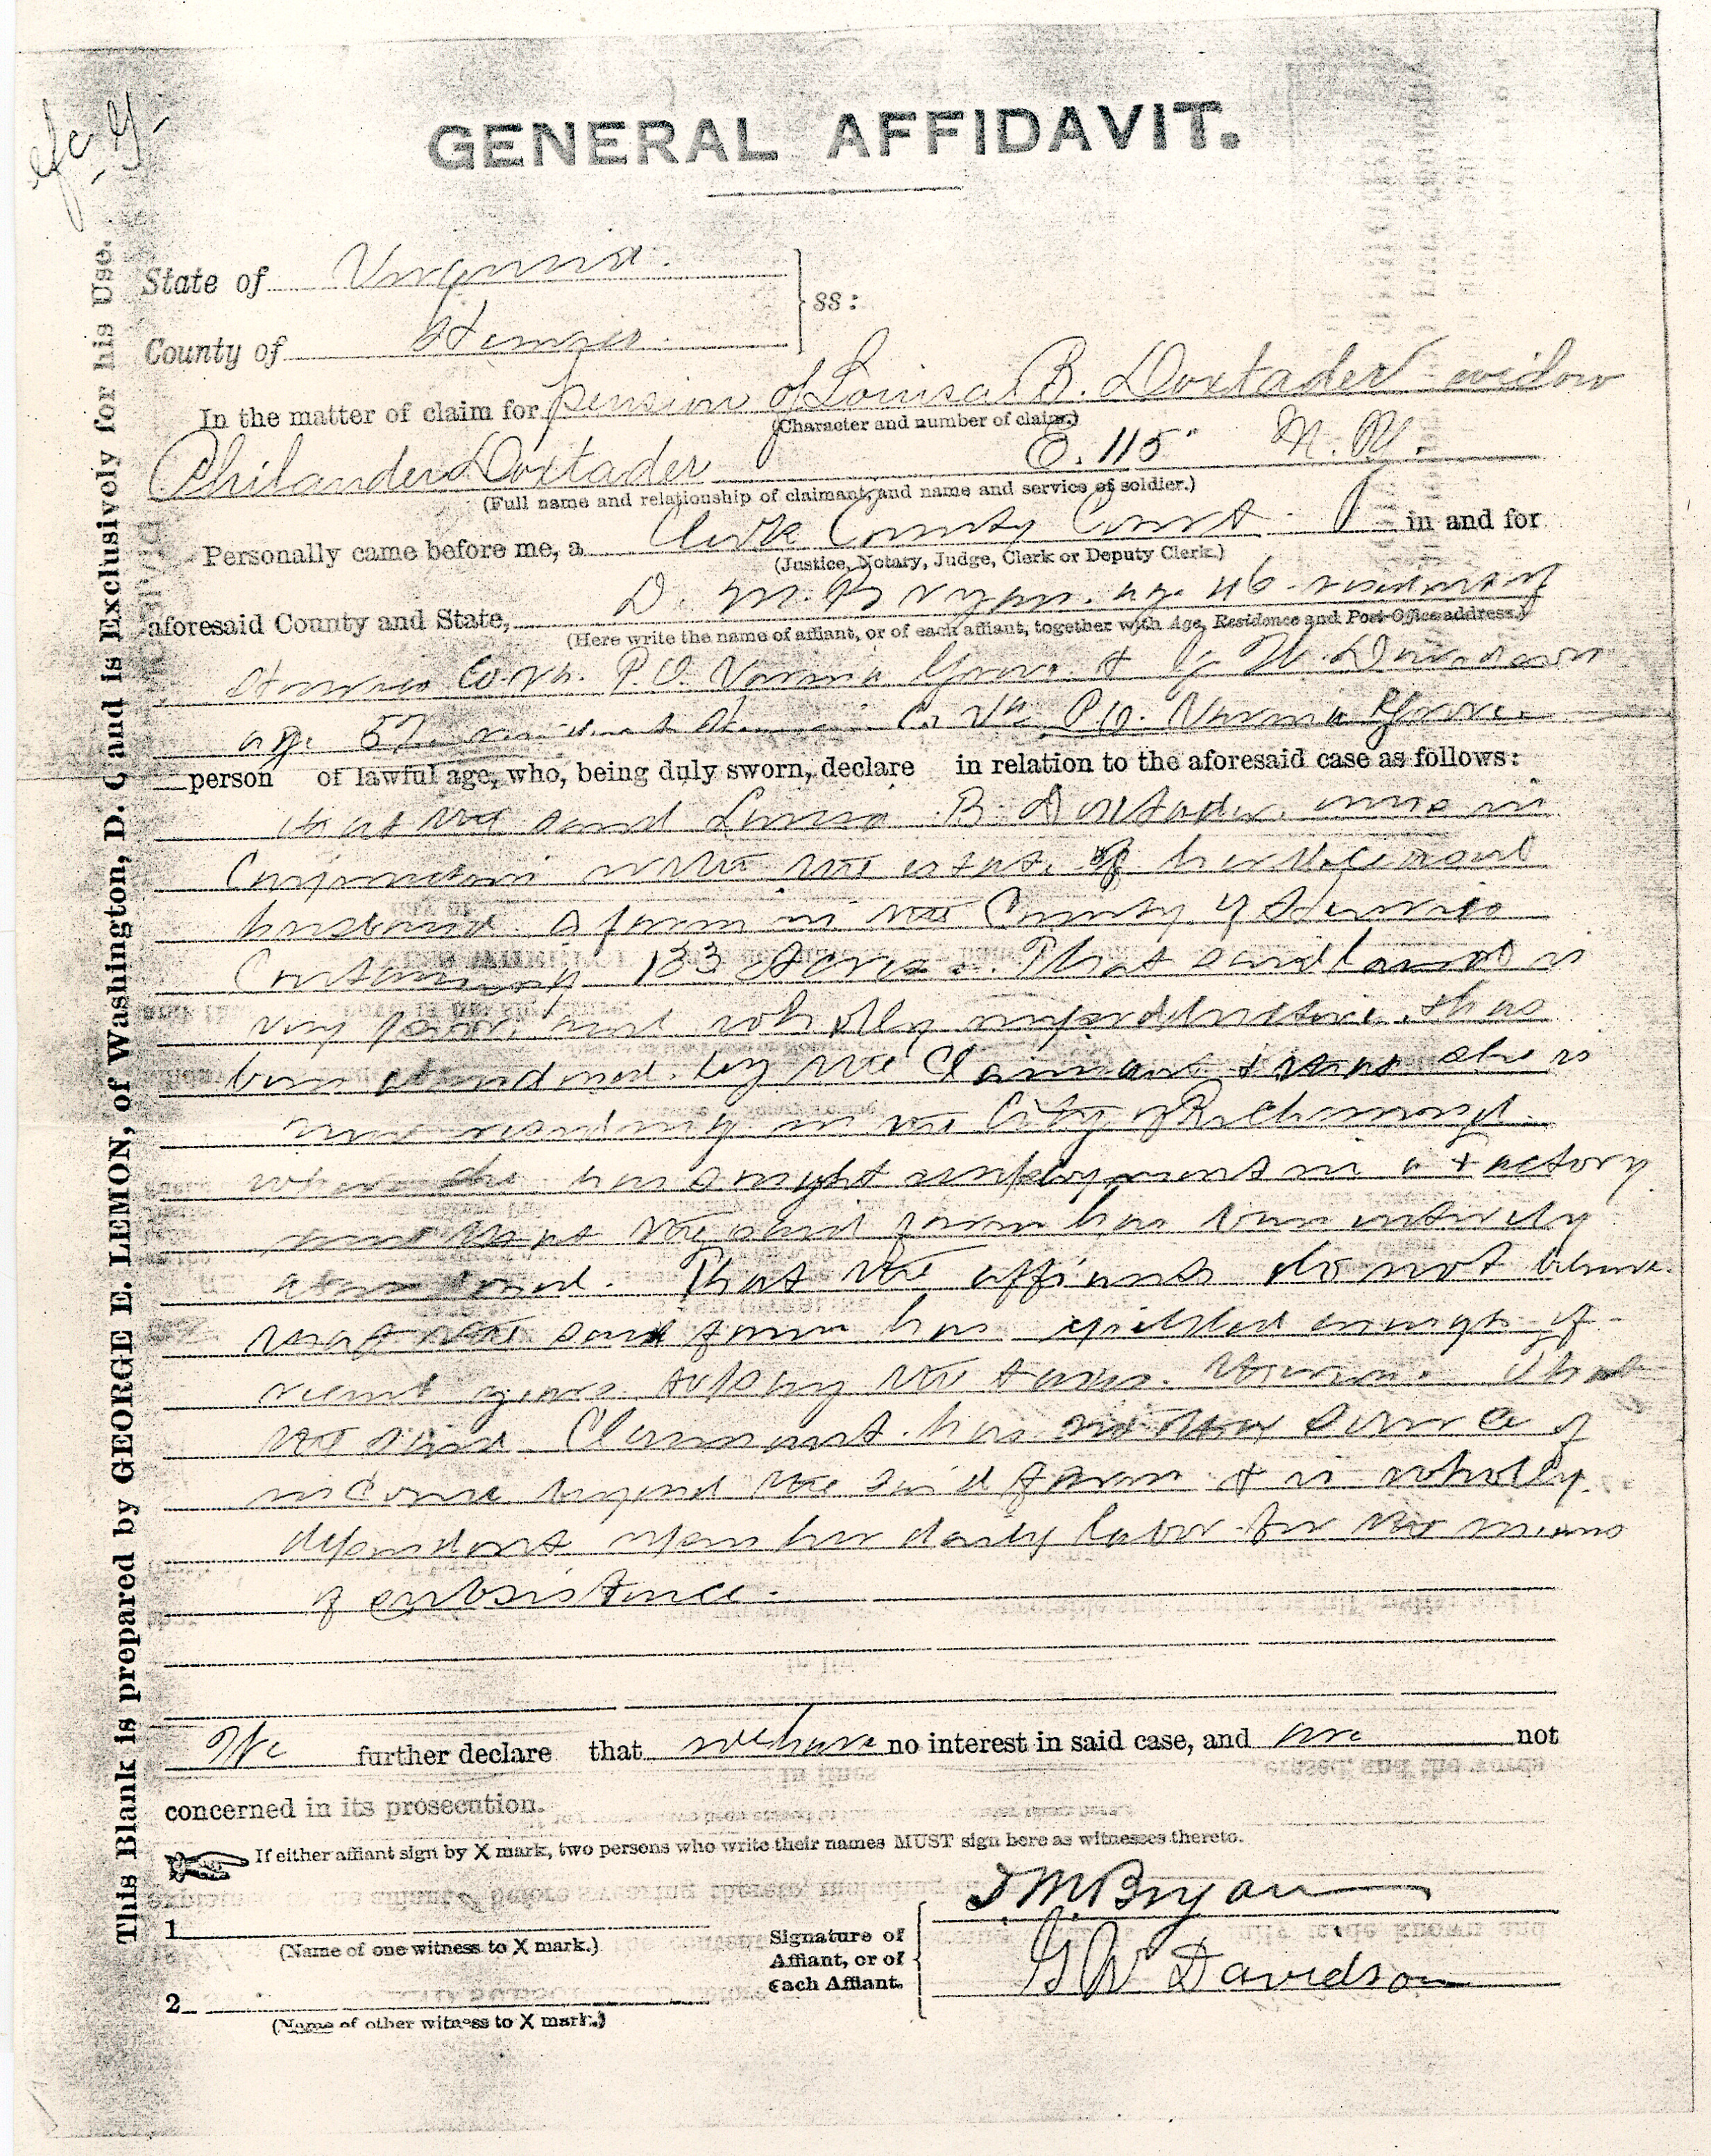 GENERAL AFFIDAVIT.
State of Virginia.
ss:
County of Henrico.
In the matter of claim for pension of Louisa B. Doxtader widow
(Character and number of claim.)
Philander Doxtader E. 115" N. Y.
(Full name and relationship of claimant, and name and service of soldier.)
Personally came before me, a Clerk County Court in and for
(Justice, Notary, Judge, Clerk or Deputy Clerk.)
aforesaid County and State, M. Bryan. age 46 resident of
(Here write the name of affiant, or of each affiant, together with Age, Residence and Post-Office address.)
Henrico Co. Va. P.O. Varina Grove. & G. W. Davidson
age 57. resident Henrico Co Va P.O. Varina Grove.
person of lawful age, who, being duly sworn, declare in relation to the aforesaid case as follows:
that the said Louisa B. Doxtader, owns in
Conjunction with the estate of her deceased
husband a farm in the County of Henrico
Containing 133 Acres. That said land is
very poor, and wholly unproductive. thas
been abandoned by the Claimant & that she is
now residing in the City of Richmond.
where she has sought employment in a Factory
and that the said farm has been entirely
abandoned. That the affiants do not believe
that the said farm has yielded enough of
recent years to pay the taxes thereon. That
the said Claimant has no other source of
income beyond the said farm & is wholly
dependent upon her daily labor for the means
of subsistence.
We further declare that we have no interest in said case, and are not
concerned in its prosecution.
If either affiant sign by X mark, two persons who write their names MUST sign here as witnesses thereto.
1
(Name of one witness to X mark.)
2
(Name of other witness to X mark.)
Signature of
Affiant, or of
each Affiant.
M Bryan
G W Davidson
This Blank is prepared by GEORGE E. LEMON, of Washington, D. C and is Exclusively for his Use.